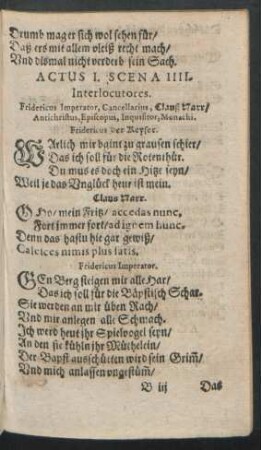 Drumb mag er sich wol sehen für/
Daß ers mit allem vleiß recht mach/
Vnd dismal nicht verderb sein Sach.
ACTUS I. SCENA IIII.
Interlocutores.
Fridericus Imperator, Cancellarius, Clauß Narr/
Antichristus, Episcopus, Inquisitor, Monachi.
Fridericus der Keyser.
WArlich mir ist grausen schier/
Das ich soll für die Rotenthür.
Du mus es doch ein Hitze seyn/
Weil je das Vnglück hewr ist mein.
Claus Narr.
O Ho/ mein Fritz/ accedas nunc,
Fort immer fort/ ad ignem hunc.
Denn das hastu hie gar gewiß/
Calefces nimis plus satis.
Fridericus Imperator.
GEn Berg steigen mir alle Har/
Das ich soll für die Bäpstisch Schar.
Sie werden an mir üben Rach/
Vnd mir anlegen alle Schmach.
Ich werd heut ihr Spielvogel seyn/
An den sie kühln jhr Müthelein/
Der Bapst ausschütten wird sein Grim̃/
Vnd mich anlassen vngestüm̃/
B iij Das